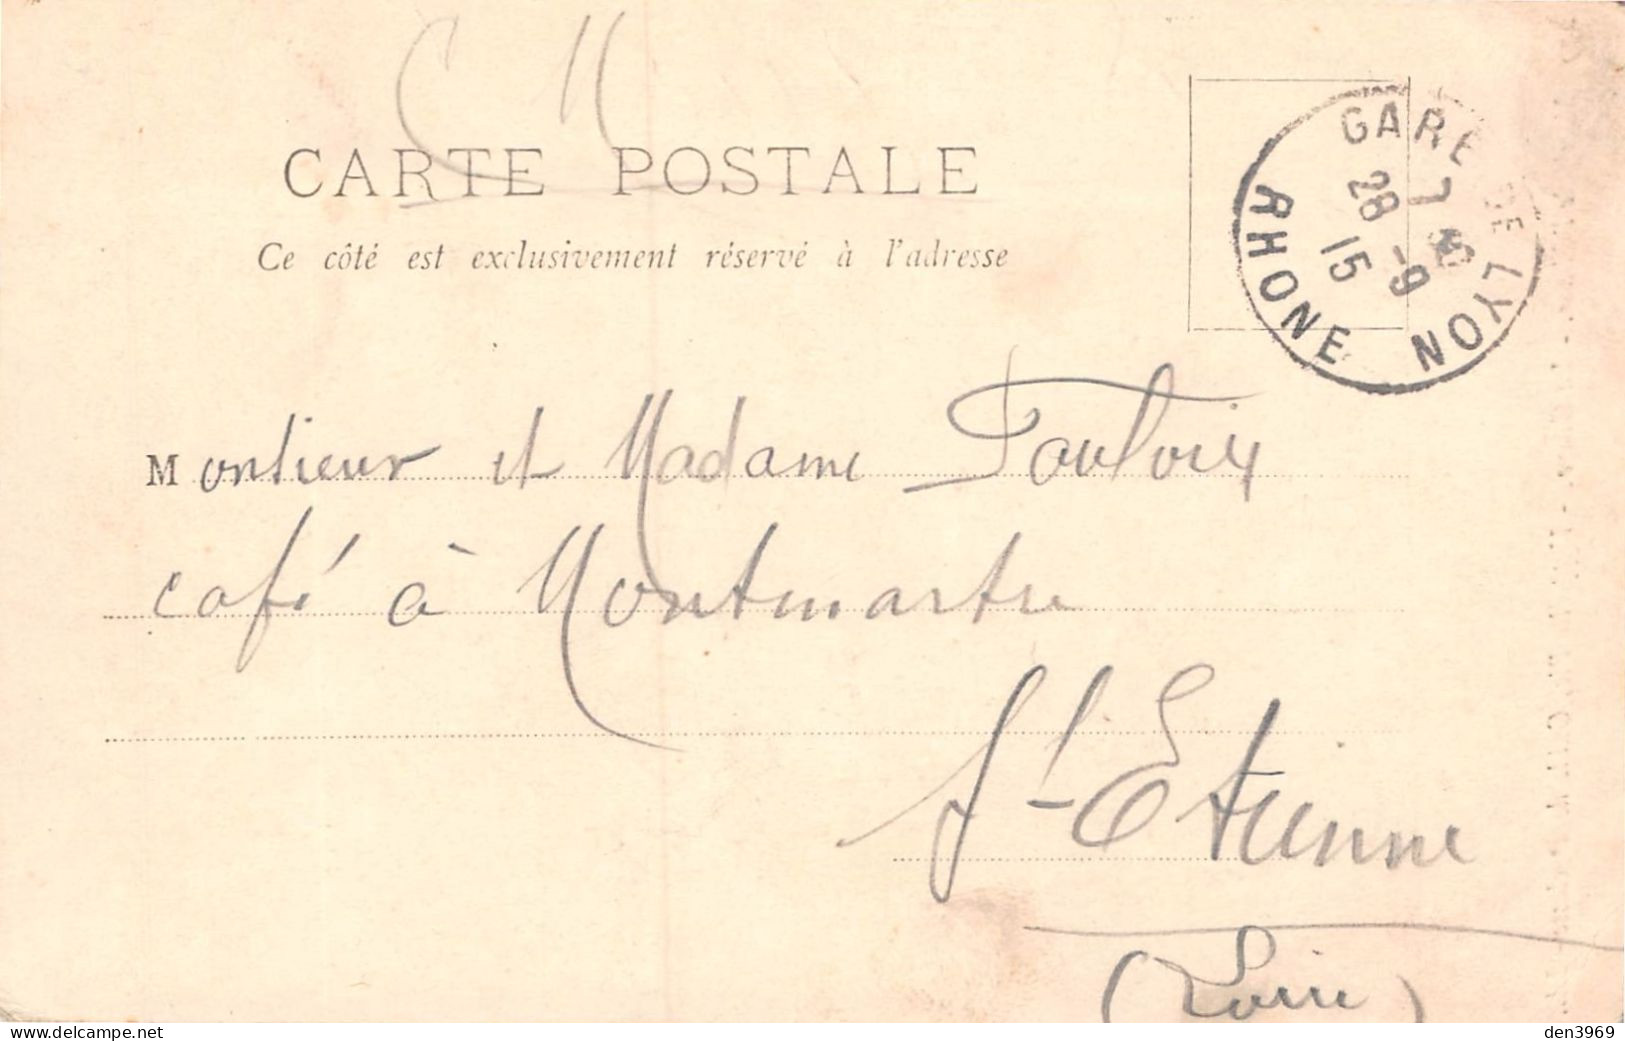 C M
CARTE POSTALE
Ce côté est exclusivement réservé à l'adresse
GARE DE LYON
7
28 -9
15
RHONE
Monsieur et Madame
café à Montmartre
St-Etienne
(Loire)
den3969